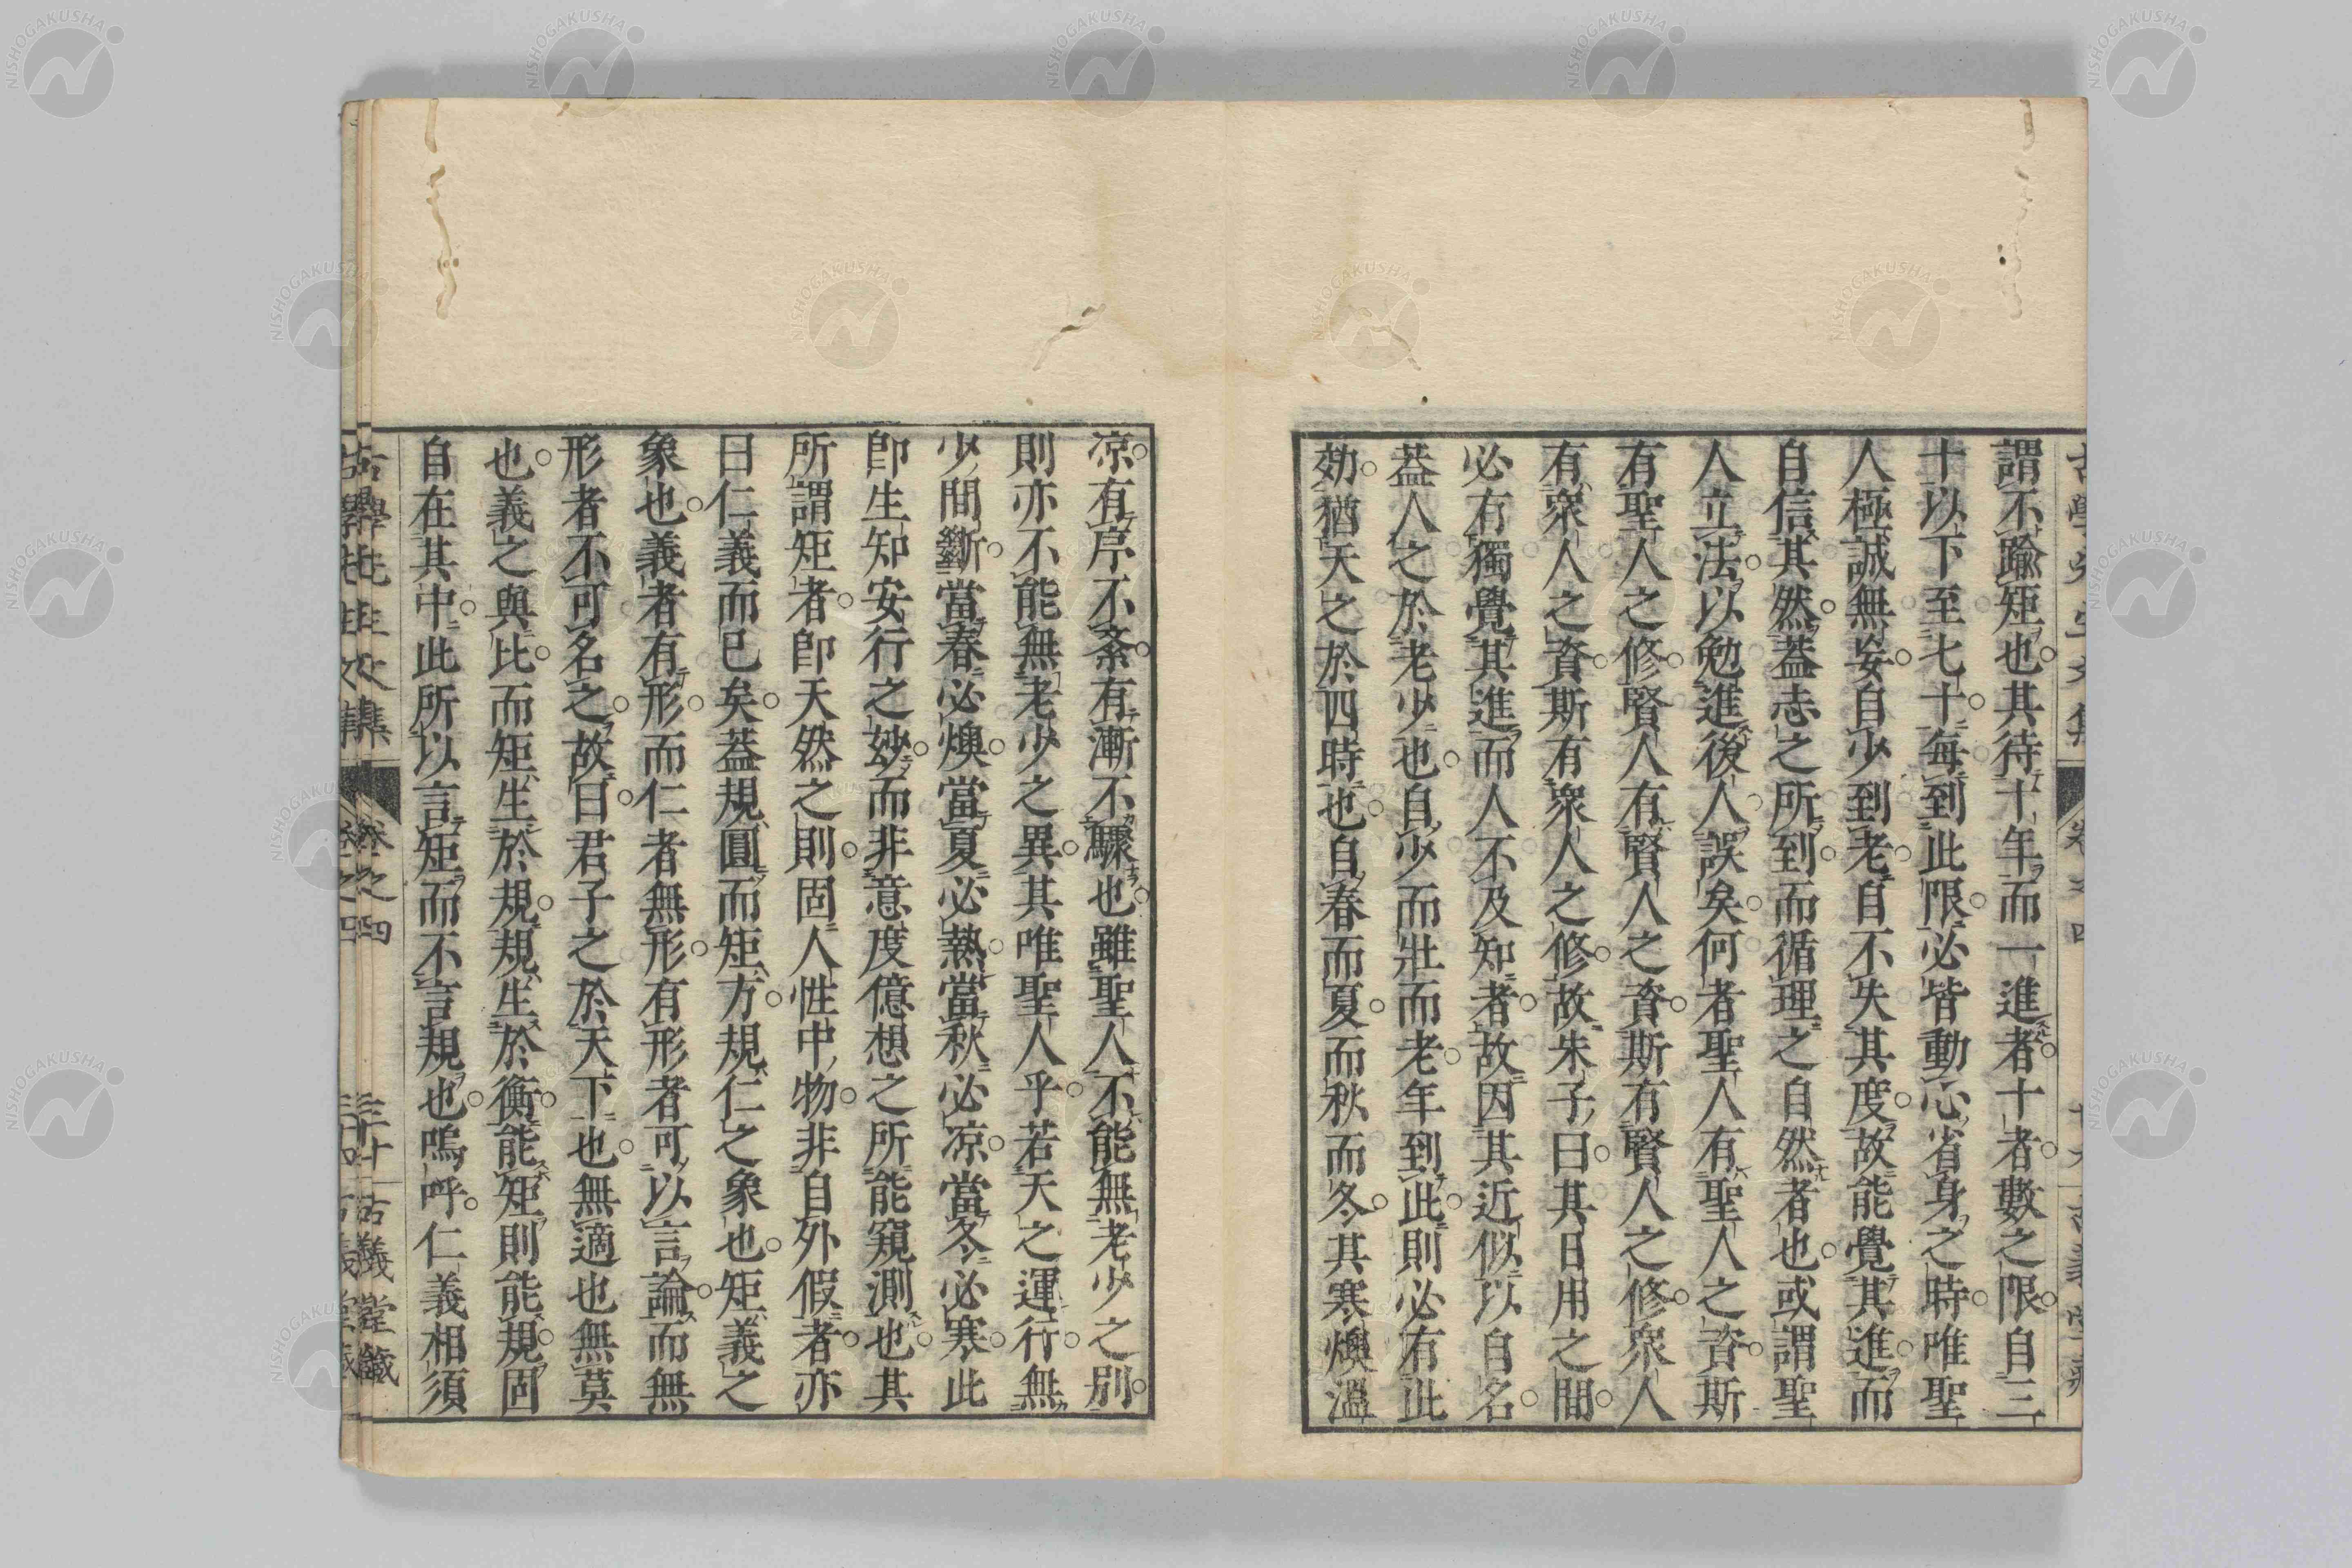 謂不踰矩也其待十年而一進者十者數之限自三
十以下至七十每到此限必皆動心省身之時唯聖
人極誠無妄自少到老自不失其度故能覺其進而
自信其然葢志之所到而循理之自然者也或謂聖
人立法以勉進後人誤矣何者聖人有聖人之資斯
有聖人之修賢人有賢人之資斯有賢人之修衆人
有衆人之資斯有衆人之修故朱子曰其日用之間
必有獨覺其進而人不及知者故因其近似以自名
葢人之於老少也自少而壯而老年到此則必有此
効猶天之於四時也自春而夏而秋而冬其寒燠溫
凉有序不紊有漸不驟也雖聖人不能無老少之別
則亦不能無老少之異其唯聖人乎若天之運行無
少間斷當春必燠當夏必熱當秋必凉當冬必寒此
卽生知安行之妙而非意度億想之所能窺測也其
所謂矩者卽天然之則固人性中物非自外假者亦
曰仁義而已矣葢規圓而矩方規仁之象也矩義之
象也義者有形而仁者無形有形者可以言論而無
形者不可名之故曰君子之於天下也無適也無莫
也義之與比而矩生於規規生於衡能矩則能規固
自在其中此所以言矩而不言規也嗚呼仁義相須
古學先生文集 卷之四 三十一 古義堂藏
NISHOGAKUSHA